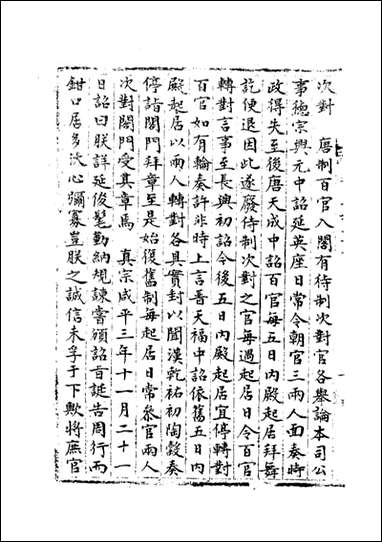 次對　唐制百官入閤有待制次對官各舉論本司公
事德宗興元中詔延英座日常令朝官三兩人面奏時
政得失至後唐天成中詔百官每五日內殿起居拜舞
訖便退因此遂廢待制次對之官每遇起居日令百官
轉對言事至長興初詔今後五日內殿起居宜停轉對
百官如有輪奏許非時上言晉天福中詔依舊五日內
殿起居以兩人轉對各具實封以聞漢乾祐初陶穀奏
停詣閤門拜章至是始復舊制每起居日常參官兩人
次對閤門受其章焉　真宗咸平三年十一月二十一
日詔曰朕詳延俊髦勤納規諫嘗頒詔旨誕告周行而
鉗口居多沃心彌寡豈朕之誠信未孚于下歟將庶官